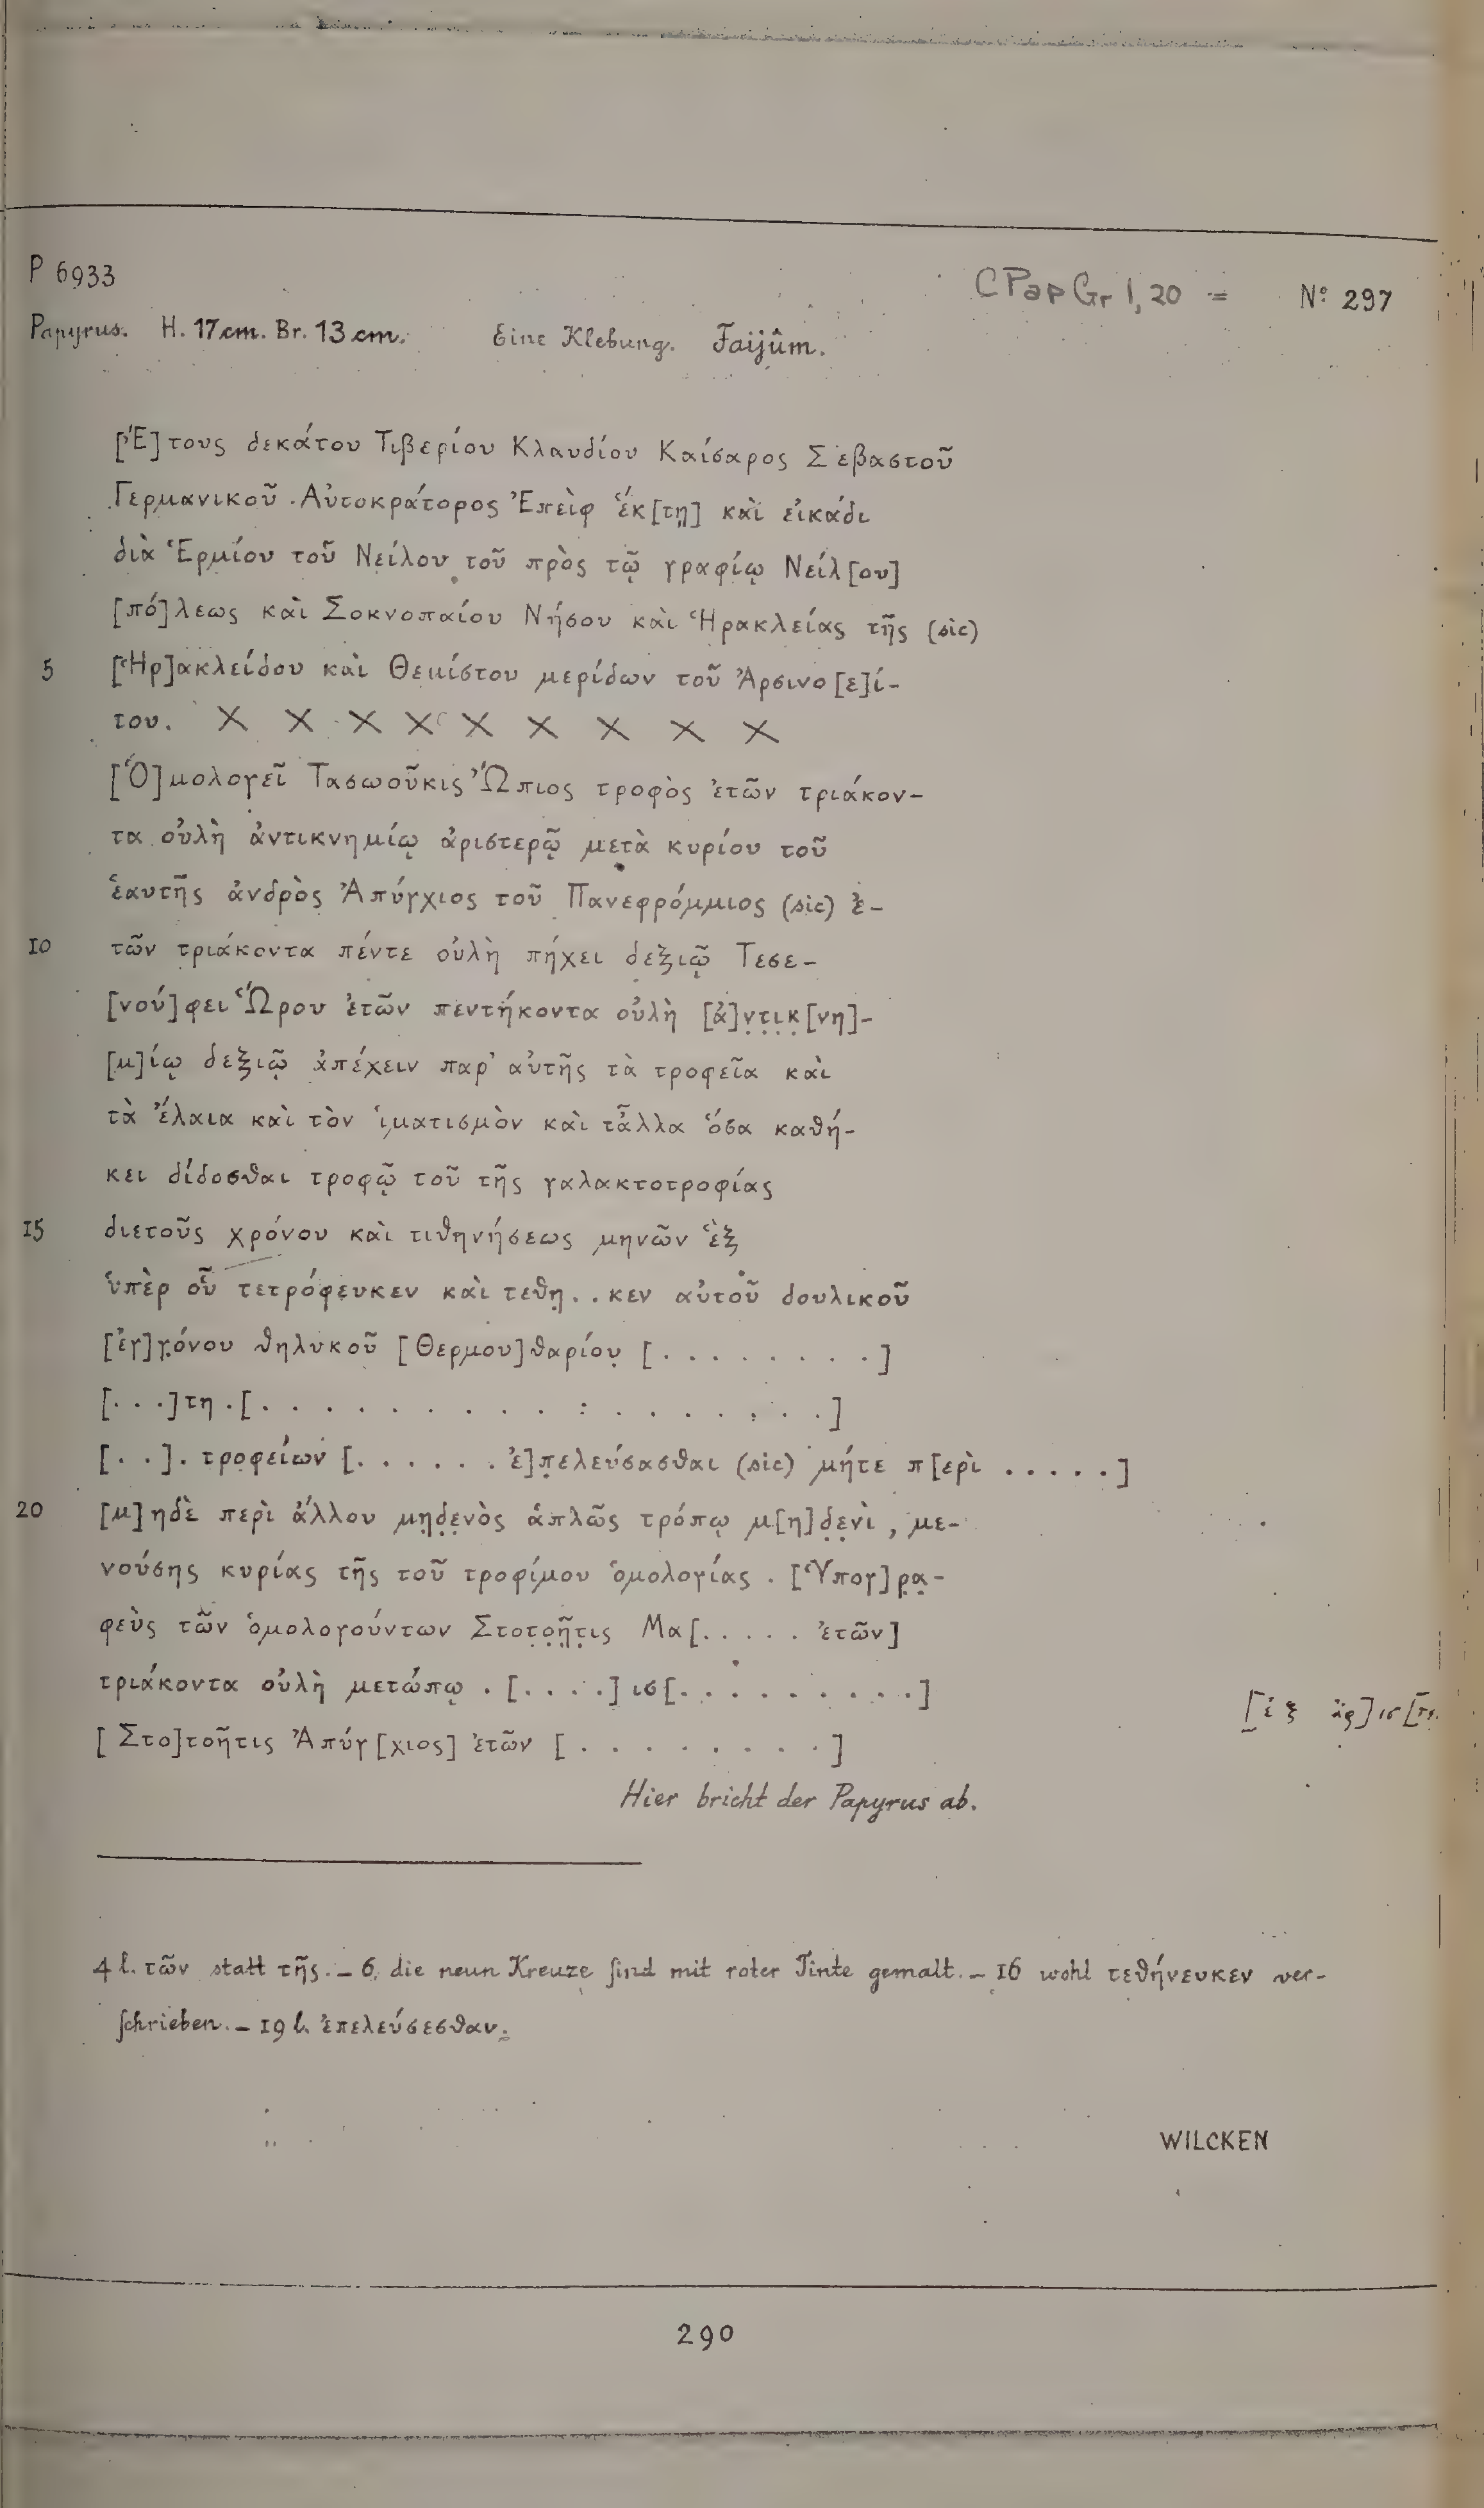 P 6933
CPapGr 1, 20 = Nº 297
Papyrus. H. 17 cm. Br. 13 cm. Eine Klebung. Faijûm.
[Ἔ]τους δεκάτου Τιβερίου Κλαυδίου Καίσαρος Σεβαστοῦ
Γερμανικοῦ Αὐτοκράτορος Ἐπεὶφ ἕκ[τῃ] καὶ εἰκάδι
διὰ Ἑρμίου τοῦ Νείλου τοῦ πρὸς τῷ γραφίῳ Νείλ[ου]
[πό]λεως καὶ Σοκνοπαίου Νήσου καὶ Ἡρακλείας τῆς (sic)
5 [Ἡρ]ακλείδου καὶ Θεμίστου μερίδων τοῦ Ἀρσινο[ε]ί-
του. X X X X X X X X X
[Ὁ]μολογεῖ Τασωοῦκις Ὤπιος τροφὸς ἐτῶν τριάκον-
τα οὐλὴ ἀντικνημίῳ ἀριστερῷ μετὰ κυρίου τοῦ
ἑαυτῆς ἀνδρὸς Ἀπύγχιος τοῦ Πανεφρόμμιος (sic) ἐ-
10 τῶν τριάκοντα πέντε οὐλὴ πήχει δεξιῷ Τεσε-
[νού]φει Ὥρου ἐτῶν πεντήκοντα οὐλὴ [ἀ]ν̣τ̣ι̣κ̣[νη]-
[μ]ίῳ δεξιῷ ἀπέχειν παρ' αὐτῆς τὰ τροφεῖα καὶ
τὰ ἔλαια καὶ τὸν ἱματισμὸν καὶ τἆλλα ὅσα καθή-
κει δίδοσθαι τροφῷ τοῦ τῆς γαλακτοτροφίας
15 διετοῦς χρόνου καὶ τιθηνήσεως μηνῶν ἓξ
ὑπὲρ οὗ τετρόφευκεν καὶ τεθη̣..κεν αὐτοῦ δουλικοῦ
[ἐγ]γ̣όνου θηλυκοῦ [Θερμου]θαρίου̣ [. . . . . . . .]
[. . .]τη.[. . . . . . . . . . : . . . . . . . .]
[. .]. τρο̣φείων [. . . . . . ἐ]π̣ελεύσασθαι (sic) μήτε π[ερὶ . . . . .]
20 [μ]ηδὲ περὶ ἄλλου μη̣δ̣ε̣νὸς ἁπλῶς τρόπῳ μ[η]δ̣ε̣νὶ, με-
νούσης κυρίας τῆς τοῦ τροφίμου ὁμολογίας. [Ὑπογ]ρ̣α̣-
φεὺς τῶν ὁμολογούντων Στοτο̣ῆ̣τ̣ις Μα[. . . . . ἐτῶν]
τριάκοντα οὐλὴ μετώπῳ. [. . . .]ισ[. . . . . . . . . .]
[Στο]τοῆτις Ἀπύγ[χιος] ἐτῶν [. . . . . . . . .]
Hier bricht der Papyrus ab.
4 l. τῶν statt τῆς. – 6, die neun Kreuze sind mit roter Tinte gemalt. – 16 wohl τεθήνευκεν ver-
schrieben. – 19 l. ἐπελεύσεσθαι.
WILCKEN
290